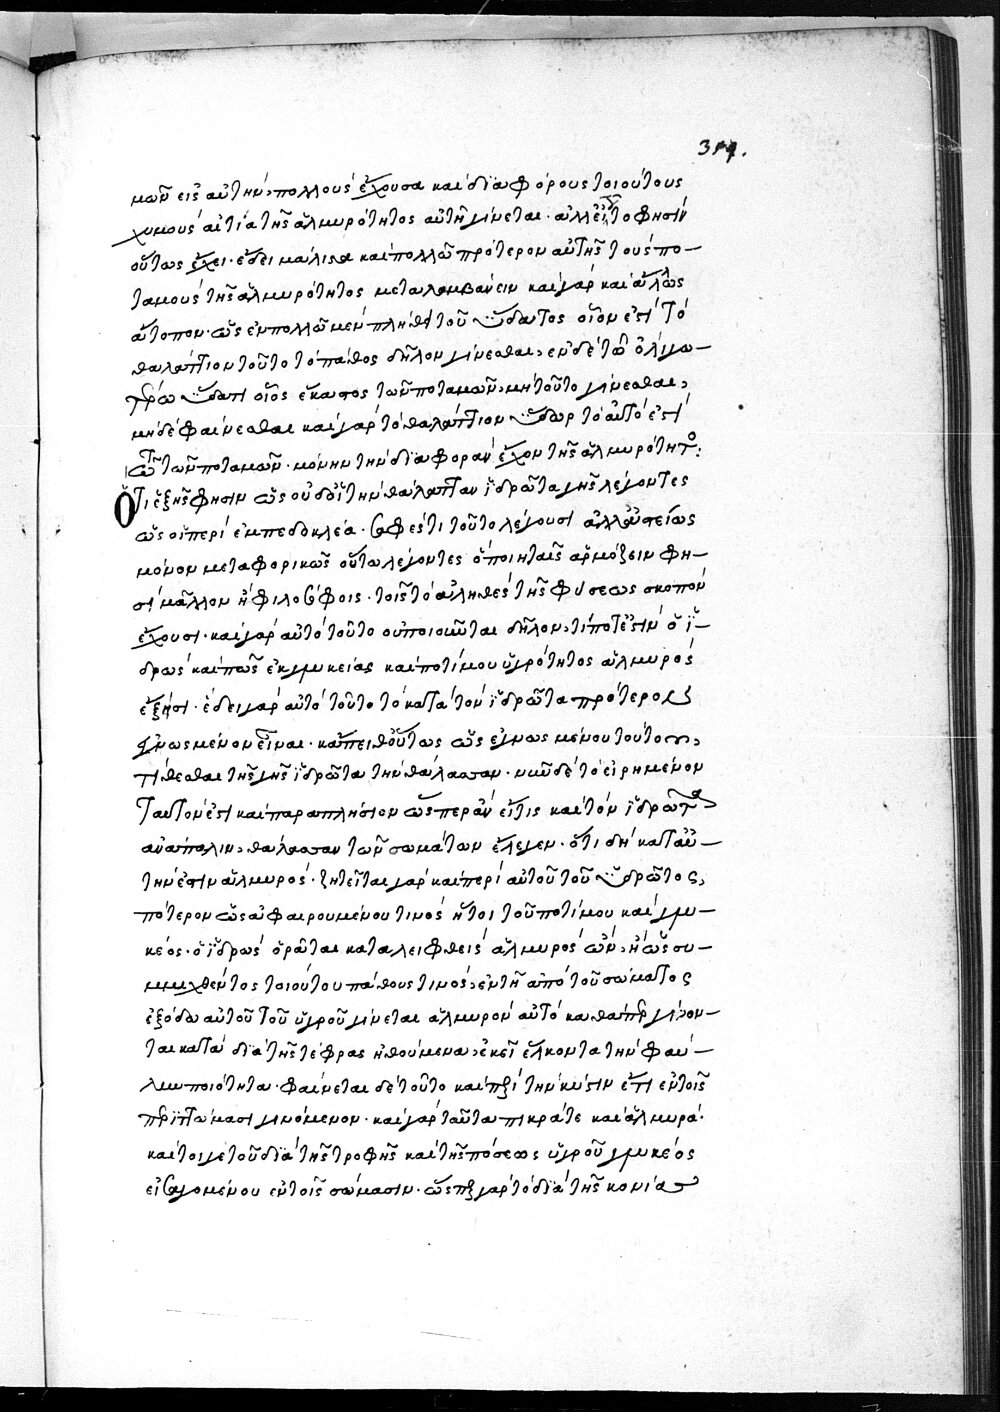 319.
μῶν εἰς αὐτὴν, πολλοὺς ἔχουσα καὶ διαφόρους τοιούτους
χυμοὺς αἰτία τῆς ἁλμυρότητος αὐτῇ γίνεται· ἀλλ' εἰ τοῦτο φησὶν
οὕτως ἔχει· ἔδει μάλιστα καὶ πολλῷ πρότερον αὐτῆς τοὺς πο-
ταμοὺς τῆς ἁλμυρότητος μεταλαμβάνειν καὶ γὰρ καὶ ἄλλως
ἄτοπον· ὡς ἐν πολλῷ μὲν πλήθει τοῦ ὕδατος οἷον ἐστὶ τὸ
θαλάττιον τοῦτο τὸ πάθος δῆλον γίνεσθαι, ἐν δὲ τῷ ὀλιγω-
τέρῳ ὕδατι οἷος ἕκαστος τῶν ποταμῶν, μὴ τοῦτο γίνεσθαι,
μηδὲ φαίνεσθαι καὶ γὰρ τὸ θαλάττιον ὕδωρ τὸ αὐτό ἐστι
τῷ τῶν ποταμῶν· μόνην τὴν διαφορὰν ἔχον τῆς ἁλμυρότητος:
Ὅτι ἑξῆς φησὶν ὡς οὐδ' οἱ τὴν θάλατταν ἱδρῶτα γῆς λέγοντες
ὡς οἱ περὶ ἐμπεδοκλέα· σαφές τι τοῦτο λέγουσι ἀλλ' ἀστείως
μόνον μεταφορικῶς οὕτω λέγοντες ὃ ποιηταῖς ἁρμόζειν φη-
σὶ μᾶλλον ἢ φιλοσόφοις· τοῖς τὸ ἀληθὲς τῆς φύσεως σκοπὸν
ἔχουσι· καὶ γὰρ αὐτὸ τοῦτο οὐ ποιοῦνται δῆλον, τί ποτ' ἐστὶν ὁ ἱ-
δρὼς καὶ πῶς ἐκ γλυκείας καὶ ποτίμου ὑγρότητος ἁλμυρὸς
ἔξεισι· ἔδει γὰρ αὐτὸ τοῦτο τὸ κατὰ τὸν ἱδρῶτα πρότερον
ἐγνωσμένον εἶναι· κἄπειθ' οὕτως ὡς ἐγνωσμένου τούτου,
τίθεσθαι τῆς γῆς ἱδρῶτα τὴν θάλασσαν· νῦν δὲ τὸ εἰρημένον
ταυτόν ἐστι καὶ παραπλήσιον ὥσπερ ἂν εἴ τις καὶ τὸν ἱδρῶτα
ἀνάπαλιν, θάλασσαν τῶν σωμάτων ἔλεγεν· ὅτι δὴ κατ' αὐ-
τήν ἐστιν ἁλμυρός· ζητεῖται γὰρ καὶ περὶ αὐτοῦ τοῦ ἱδρῶτος,
πότερον ὡς ἀφαιρουμένου τινὸς ἤτοι τοῦ ποτίμου καὶ γλυ-
κέος· ὁ ἱδρὼς ὁρᾶται καταλειφθεὶς ἁλμυρὸς ὢν, ἢ ὡς συ-
μμιχθέντος τοιούτου πάθους τινός, ἐν τῇ ἀπὸ τοῦ σώματος
ἐξόδῳ αὐτοῦ τοῦ ὑγροῦ γίνεται ἁλμυρὸν αὐτὸ καθάπερ γίνον-
ται κατὰ διὰ τῆς τέφρας ἠθούμενα, ἐκεῖ ἕλκοντα τὴν φαύ-
λην ποιότητα· φαίνεται δὲ τοῦτο καὶ περὶ τὴν κύστιν ἔτι ἐν τοῖς
περιττώμασι γινόμενον· καὶ γὰρ ταῦτα πικρά τε καὶ ἁλμυρά·
καίτοι γε τοῦ διὰ τῆς τροφῆς καὶ τῆς πόσεως ὑγροῦ γλυκέος
εἰσαγομένου ἐν τοῖς σώμασιν· ὥσπερ γὰρ τὸ διὰ τῆς κονίας